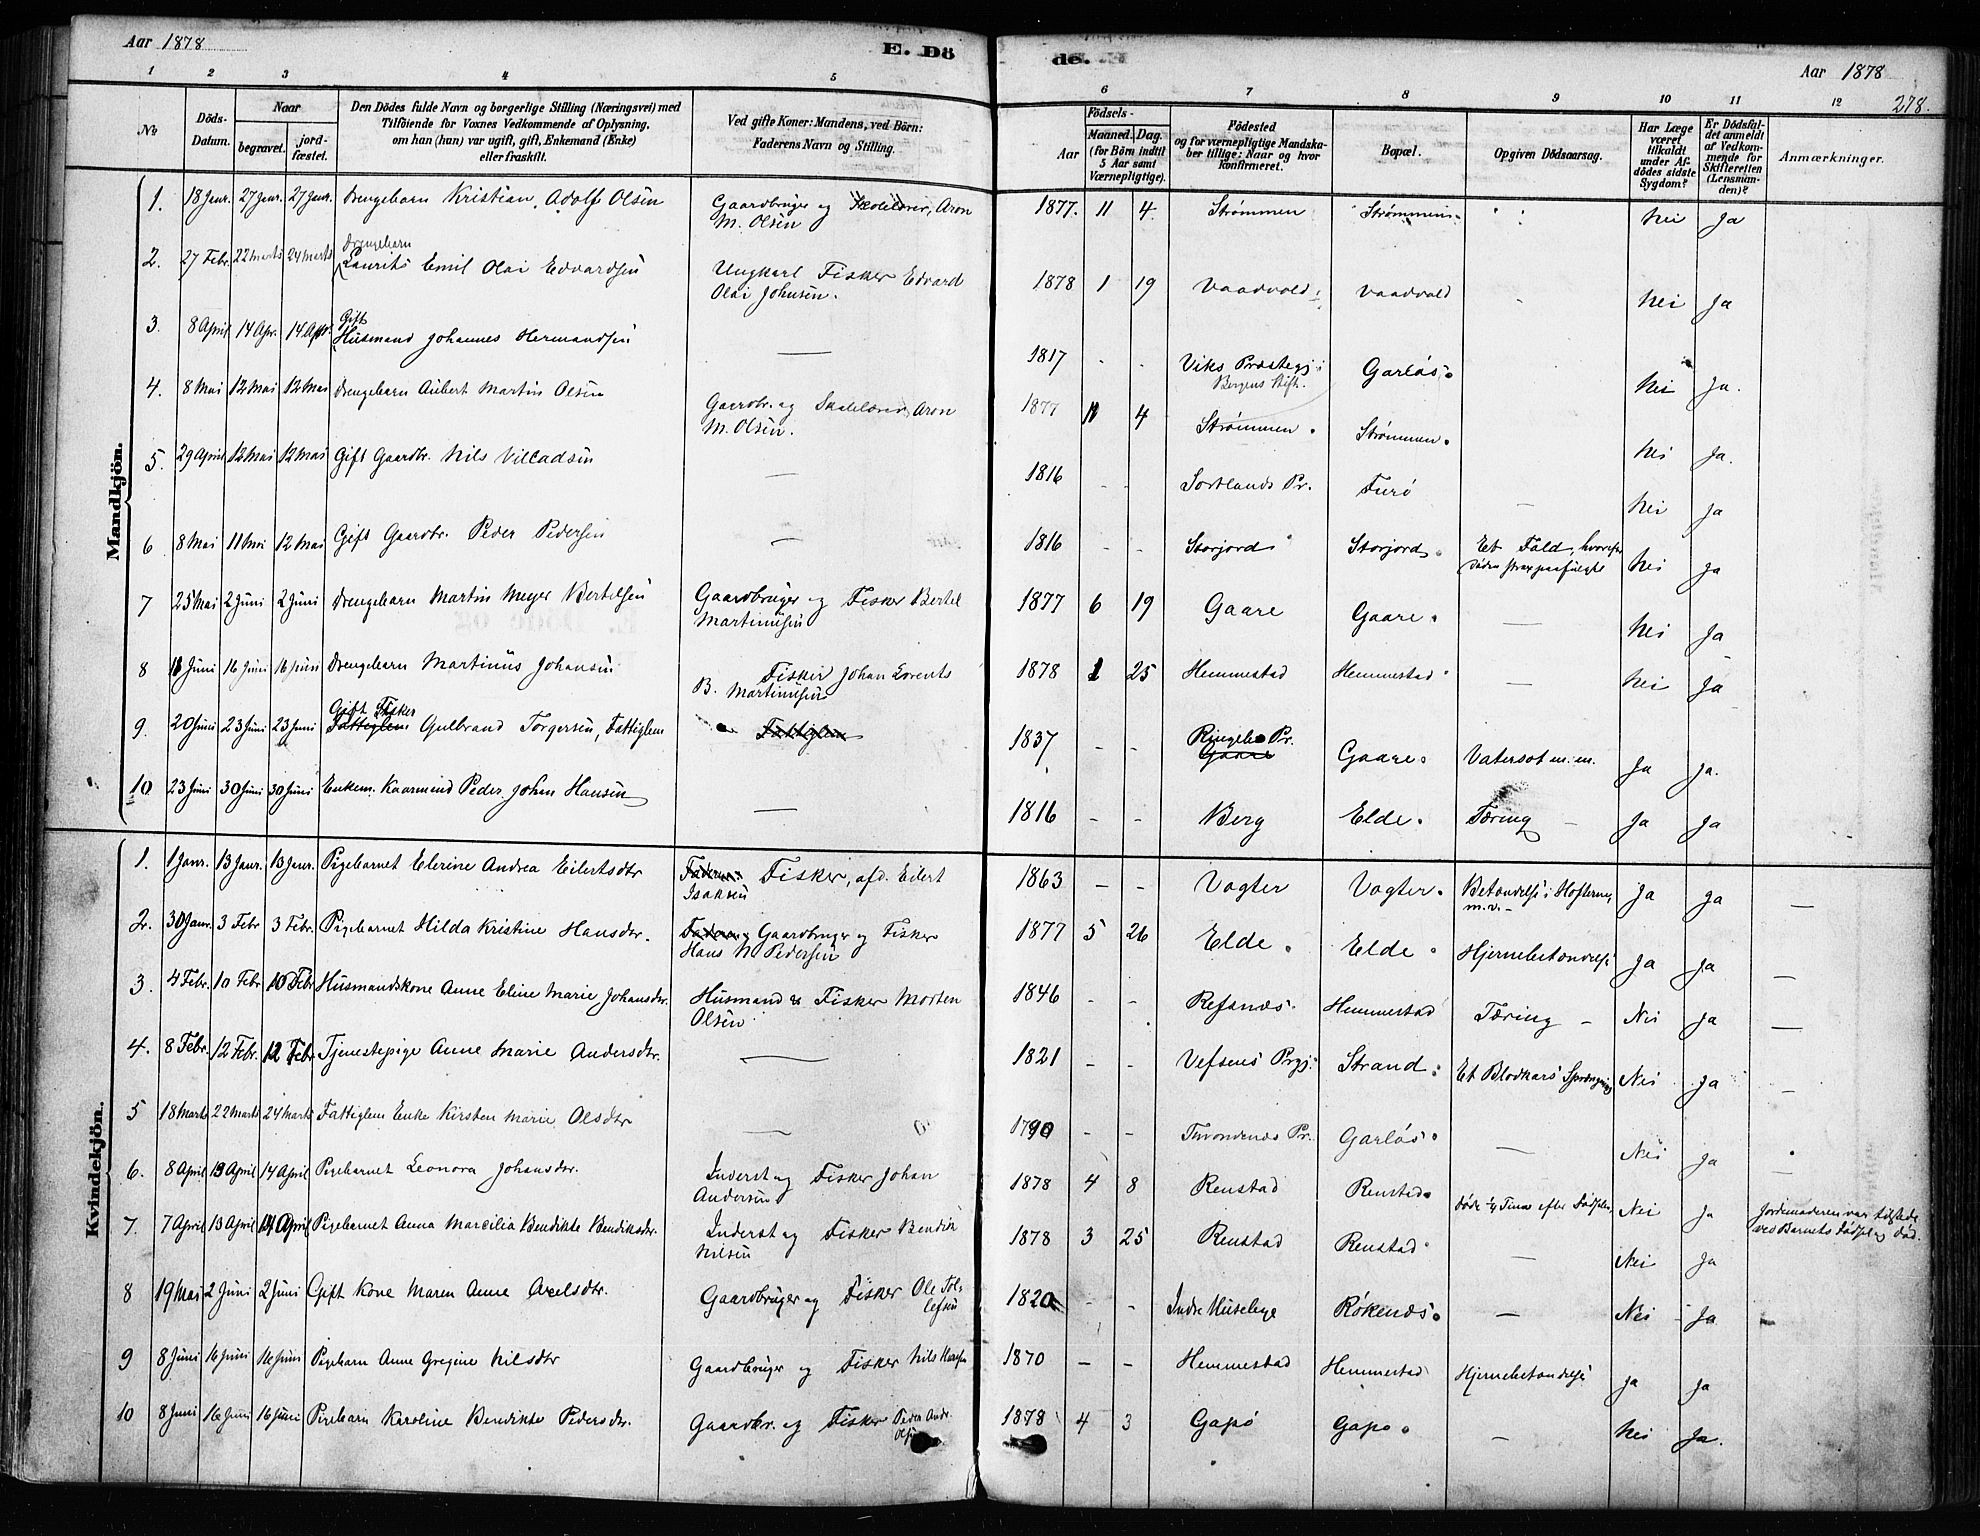 Aar 1878
E. Dö
de.
Aar 1878
278.
1 2 3 4 5 6 7 8 9 10 11 12
No
Döds-Datum.
Naar
begravet.
jord-fæstet.
Den Dödes fulde Navn og borgerlige Stilling (Næringsvei) med
Tilföiende for Voxnes Vedkommende af Oplysning,
om han (hun) var ugift, gift, Enkemand (Enke)
eller fraskilt.
Ved gifte Koner: Mandens, ved Börn:
Faderens Navn og Stilling.
Födsels-
Aar
Maaned.
Dag.
(for Börn indtil
5 Aar samt
Værnepligtige).
Födested
og for værnepligtige Mandska-
ber tillige: Naar og hvor
konfirmeret.
Bopæl.
Opgiven Dödsaarsag.
Har Læge
været
tilkaldt
under Af-
dödes sidste
Sygdom?
Er Dödsfal-
det anmeldt
af Vedkom-
mende for
Skifteretten
(Lensman-
den)?
Anmærkninger.
Mandkjön.
1. 18 Janr. 27 Janr. 27 Janr. Drengebarn Kristian Adolf Olsen Gaardbruger og Skolelærer, Aron M. Olsen 1877. 11 4. Strømmen Strømmen Nei Ja
2. 27 Febr. 22 Marts 24 Marts Drengebarn Laurits Emil Olai Edvardsen Ungkarl Fisker Edvard Olai Johnsen. 1878 1 19 Vaadvold Vaadvold Nei Ja
3. 8 April 14 Apr. 14 Apr. Gift Husmand Johannes Hermandsen — 1817 - - Viks Præstegj: Bergens Stift. Garløs Nei Ja.
4. 8 Mai 12 Mai 12 Mai Drengebarn Aubert Martin Olsen Gaardbr. og Skolelærer, Aron M. Olsen. 1877 11 4 Strømmen Strømmen Nei Ja.
5. 29 April 12 Mai 12 Mai Gift Gaardbr. Nils Villadsen — 1816 - - Sortlands Pr. Furø — Nei Ja
6 8 Mai 11 Mai 12 Mai Gift Gaardbr. Peder Pedersen — 1816 - - Storjord Storjord Et Fald, hvorefter Døden strax paafulgte Nei Ja
7 25 Mai 2 Juni 2 Juni Drengebarn Martin Meyer Bertelsen Gaardbruger og Fisker Bertel Martinusen 1877 6 19 Gaare Gaare — Nei Ja
8 11 Juni 16 Juni 16 Juni Drengebarn Martinus Johansen Fisker Johan Lorents B. Martinusen 1878 1 25 Hemmestad Hemmestad — Nei Ja
9. 20 Juni 23 Juni 23 Juni Gift Fisker Fattiglem Gulbrand Torgersen, Fattiglem Fattiglem 1837 - - Ringebo Pr. Gaare Gaare Vatersot m. m. Ja Ja.
10 23 Juni 30 Juni 30 Juni Enkem. Kaarmand Peder Johan Hansen — 1816 - - Berg Elde Tæring — Ja Ja
Kvindekjön.
1. 1 Janr. 13 Janr. 13 Janr. Pigebarnet Elerine Andrea Eilertsdtr Faderen: Fisker, afd. Eilert Isaksen 1863 — - Vogter Vogter Betændelse i Hofterne m.v. Ja Ja —
2. 30 Janr. 3 Febr 3 Febr. Pigebarnet Hilda Kristine Hansdtr. Faderen Gaardbruger og Fisker Hans N Pedersen 1877 5 26 Elde Elde Hjernebetændelse Ja Ja —
3. 4 Febr. 10 Febr 10 Febr Husmandskone Anne Eline Marie Johansdtr. Husmand & Fisker Morten Olsen 1846 - - Refsnæs Hemmestad Tæring — Nei Ja —
4. 8 Febr. 12 Febr. 12 Febr. Tjenestepige Anne Marie Andersdtr. — 1821 - - Vefsens Prgj: Strand Et Blodkars Sprængning Nei Ja —
5 18 Marts 22 Marts 24 Marts Fattiglem Enke Kirsten Marie Olsdtr — 1790 - - Throndenæs Pr. Garløs — Nei Ja
6. 8 April 13 April 14 April Pigebarnet Leonora Johansdtr. Inderst og Fisker Johan Andersen 1878 4 8 Renstad Renstad Døde ¼ Time efter Fødselen Nei Ja Jordemoderen var tilstede ved Barnets Fødsel og Død.
7. 7 April 13 April 14 April Pigebarnet Anna Marcilia Bendikte Bendiksdtr. Inderst og Fisker Bendik Nilsen 1878 3 25 Renstad Renstad — Nei Ja
8 19 Mai 2 Juni 2 Juni Gift Kone Maren Anne Axelsdtr. Gaardbruger og Fisker Ole Tollefsen 1820 - - Indre Huseleye Røkenæs — Nei Ja
9 8 Juni 16 Juni 16 Juni Pigebarn Anne Gregine Nilsdtr Gaardbruger og Fisker Nils 1870 — - Hemmestad Hemmestad Hjernebetændelse Ja Ja
10 8 Juni 16 Juni 16 Juni Pigebarn Karoline Bendikte Pedersdtr. Gaardbr. og Fisker Peder Andr. Olsen 1878 4 3 Gapø Gapø — Nei Ja.